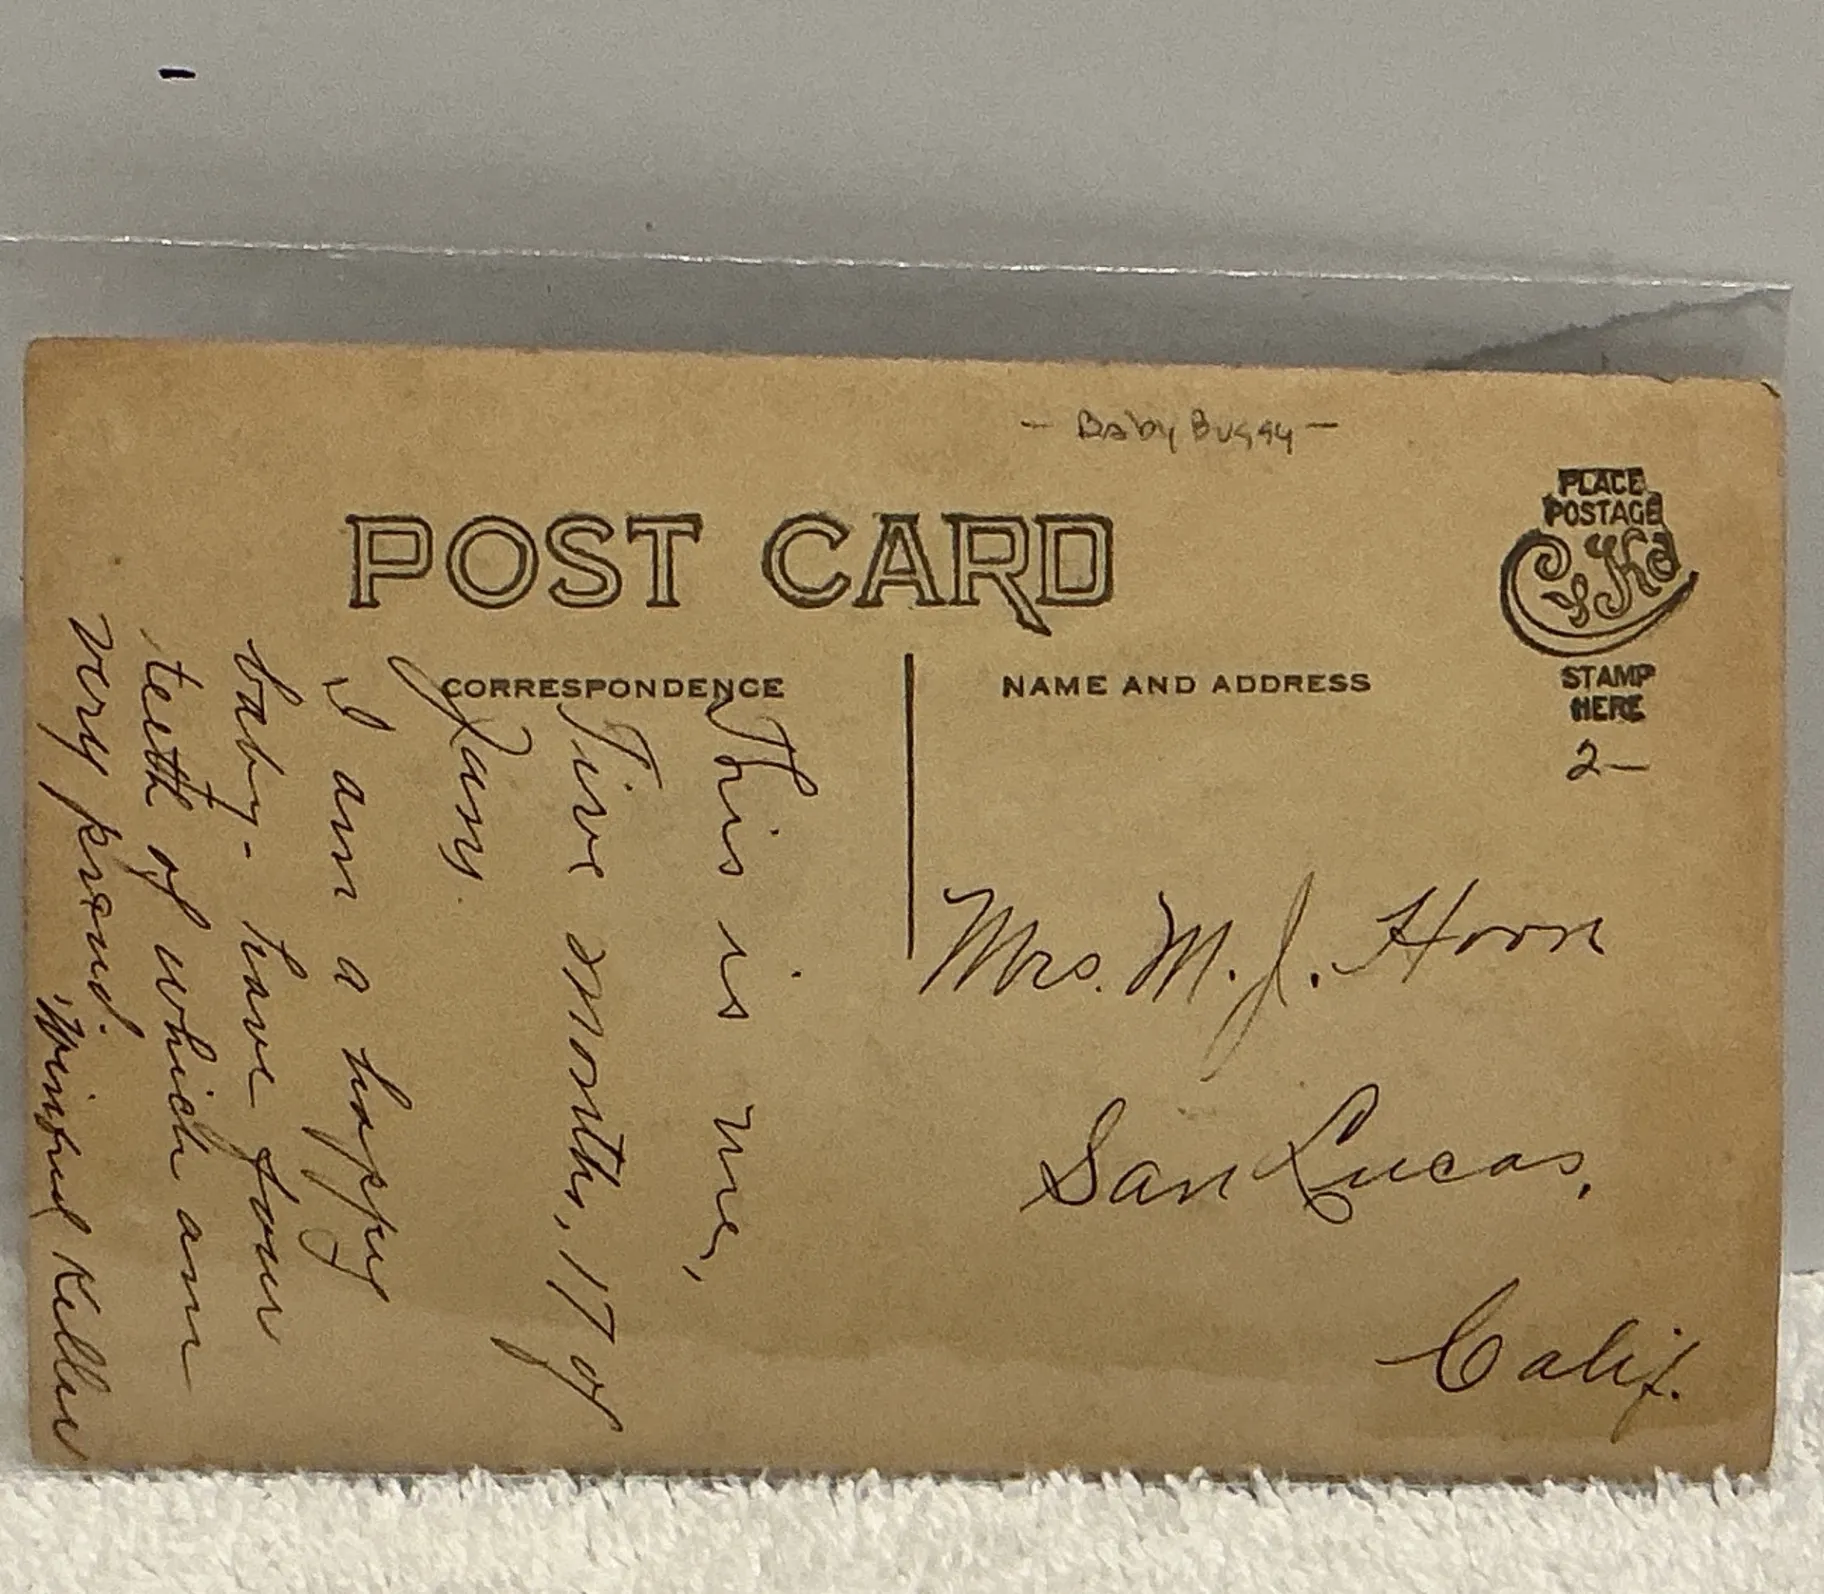 - Baby Buggy -
PLACE
POSTAGE
CyKo
STAMP
HERE
2-
POST CARD
CORRESPONDENCE
NAME AND ADDRESS
This is me,
Five months, 17 of
Jany.
I am a happy
baby - have four
teeth of which am
very proud.
Winifred Keller
Mrs. M. J. Horn
San Lucas,
Calif.